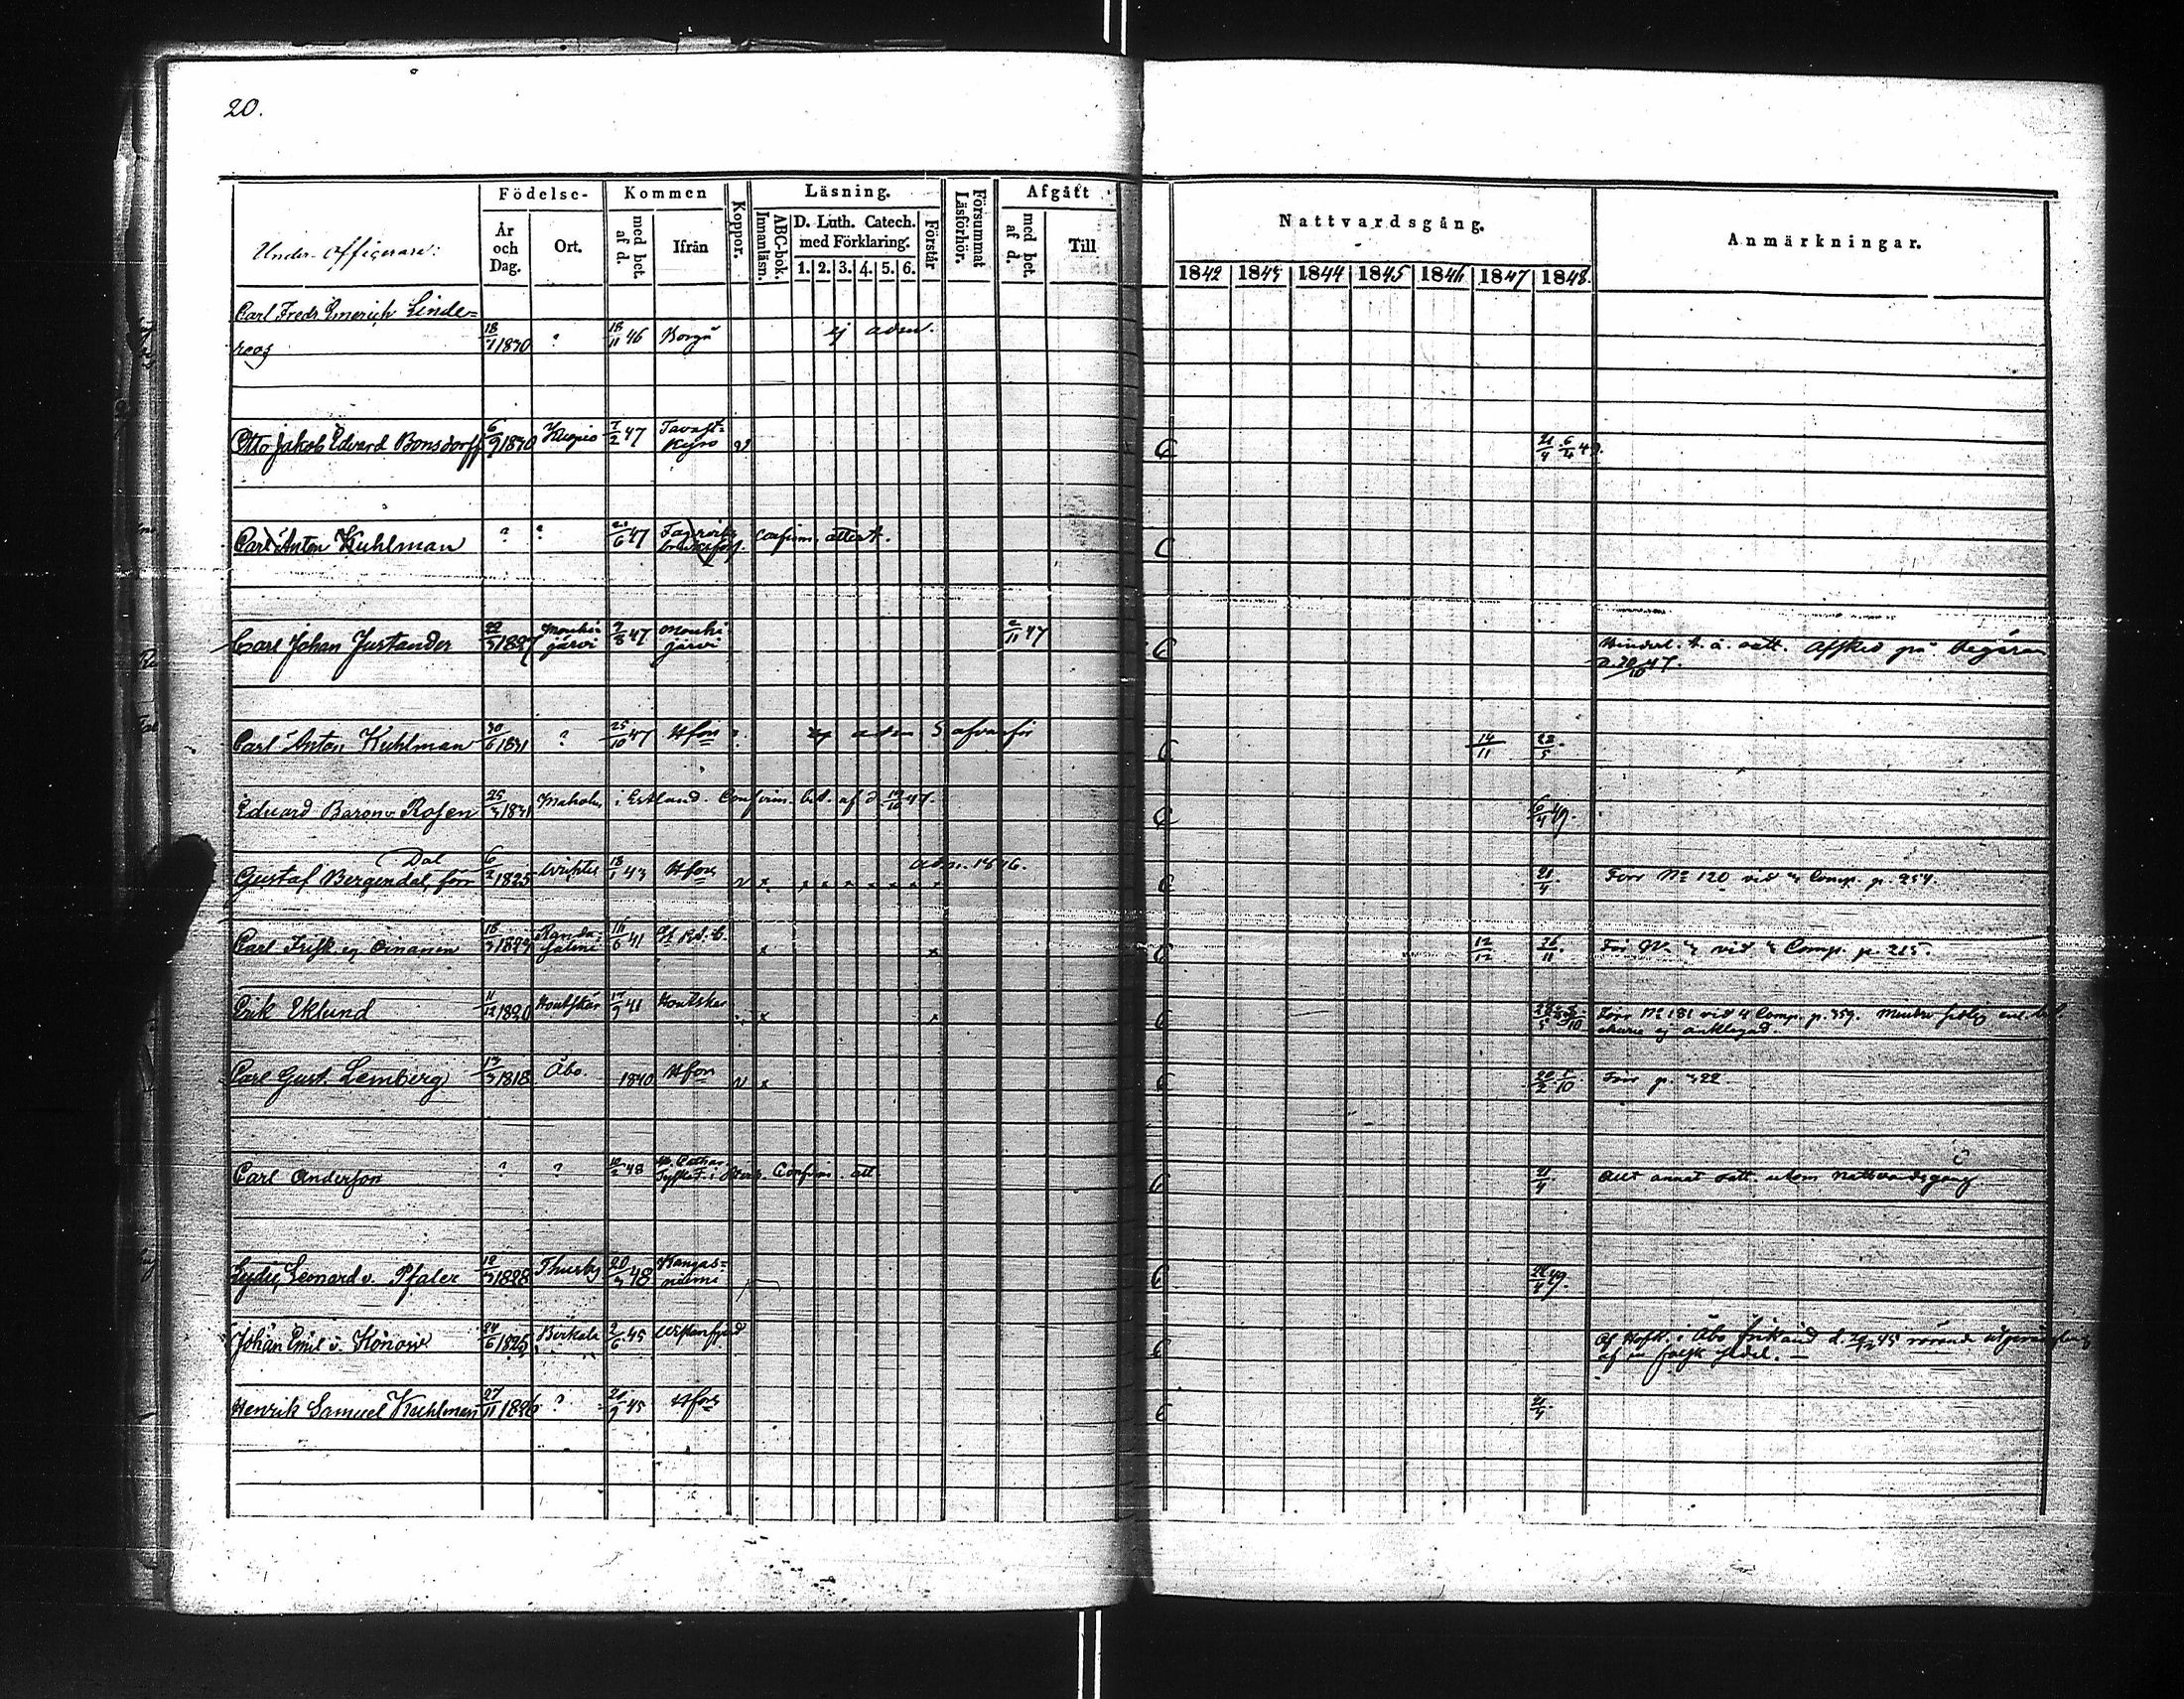 20.
Under-Officerare:
Födelse-
Kommen
Läsning.
Afgått
År och Dag.
Ort.
med bet. af d.
Ifrån
Koppor.
Innanläsn.
ABC-bok.
D. Luth. Catech. med Förklaring.
1. 2. 3. 4. 5. 6.
Förstår
Försummat Läsförhör.
med bet. af d.
Till
Nattvardsgång.
1842 1843 1844 1845 1846 1847 1848.
Anmärkningar.
Carl Fredr Emerich Linde=
roos 18/7 1830 ? 18/11 46 Borgå ej adm.
Otto Jakob Edvard Bonsdorff 6/9 1830 Kuopio 7/2 47 Tavast=
Kyro C 21/4 6/4 49.
Carl Anton Kuhlman ? ? 21/6 47 confirm. attest. C
Carl Johan Justander 22/3 1827 Mouhi=
järvi 9/8 47 Mouhi
järvi 2/11 47 C Hinderl. t. ä. Afsked på begäran
d. 20/10 47.
Carl Anton Kuhlman 30/6 1831 ? 25/10 47 Hfors C 14/11 28/5
Eduard Baron v Rosen 25/3 1831 i Estland. Confirm. bet. af d. 19/10 47. C 6/4 49.
Dal
Gustaf Bergendal, förr 6/2 1825 18/1 43 Hfors adm. 1846. C 21/4 Förr No 120 vid 4 Comp. p. 254.
Carl Frisk eg Oinanen Randa=
salmi 16/6 41 C 12/12 26/11 vid 4 Comp. p. 215.
Erik Eklund 11/12 1820 Houtskär 17/9 41 Houtskär C Förr No 181 vid 4 Comp. p. 359.
ej anklagad
Carl Gust. Lemberg 17/3 1818 Åbo. 1840 Hfors C 20/2 1/10 Förr p. 322.
Carl Anderson ? ? 10/2 48 Confirm. att C 21/4 Allt annat att. utom nattvardsgång
Leonard v. Pfaler 18/3 1828 Thusby 20/3 48 Kangas=
niemi C 22/4 49.
Johan Emil v. Konow 24/6 1825 Birkala 2/6 45 C Af Hofr. i Åbo frikänd d. 45 rörande
af en falsk sedel.
Henrik Samuel Kuhlman 27/11 1826 ? 21/9 45 Hfors C 21/4